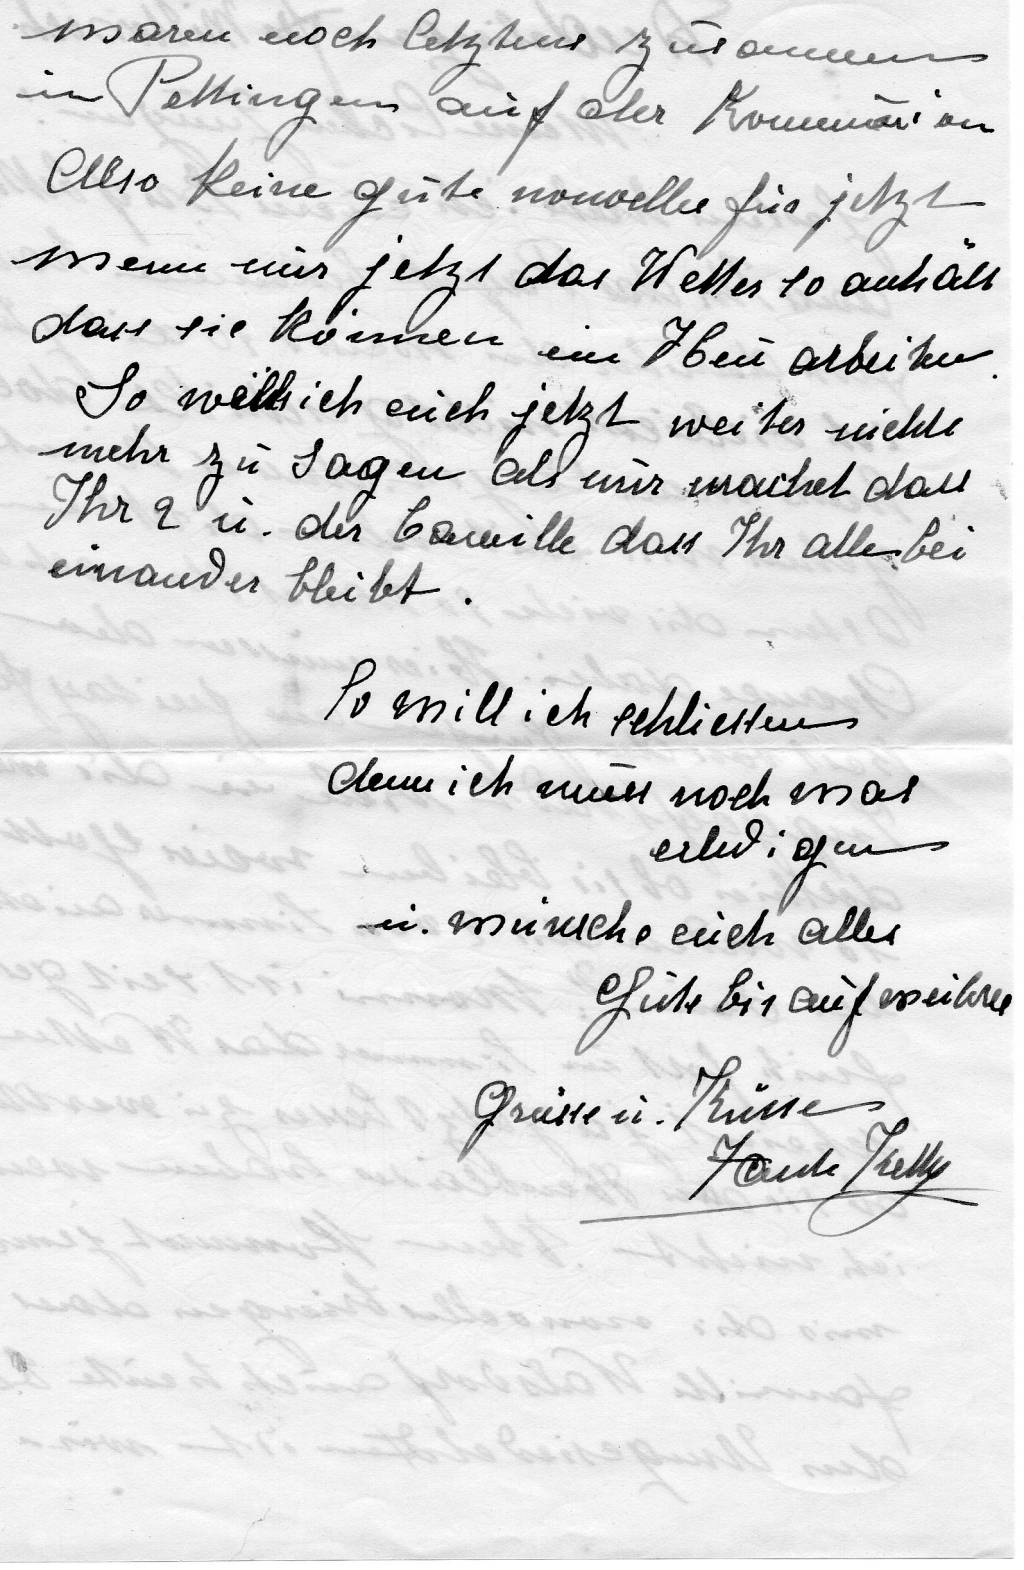 waren noch letztens zusammen
in Pettingen auf der Kommunion
Also keine gute nouvelle für jetzt
wenn nur jetzt das Wetter so anhält
dass sie können im Heu arbeiten.
So will ich euch jetzt weiter nichts
mehr zu sagen als nur machet dass
Ihr 2 u. der Camille dass Ihr alle bei
einander bleibt.
So will ich schliessen
denn ich muss noch was
erledigen
u. wünsche euch alles
Gute bis auf weiteres
Grüsse u. Küsse
Tante Ketty